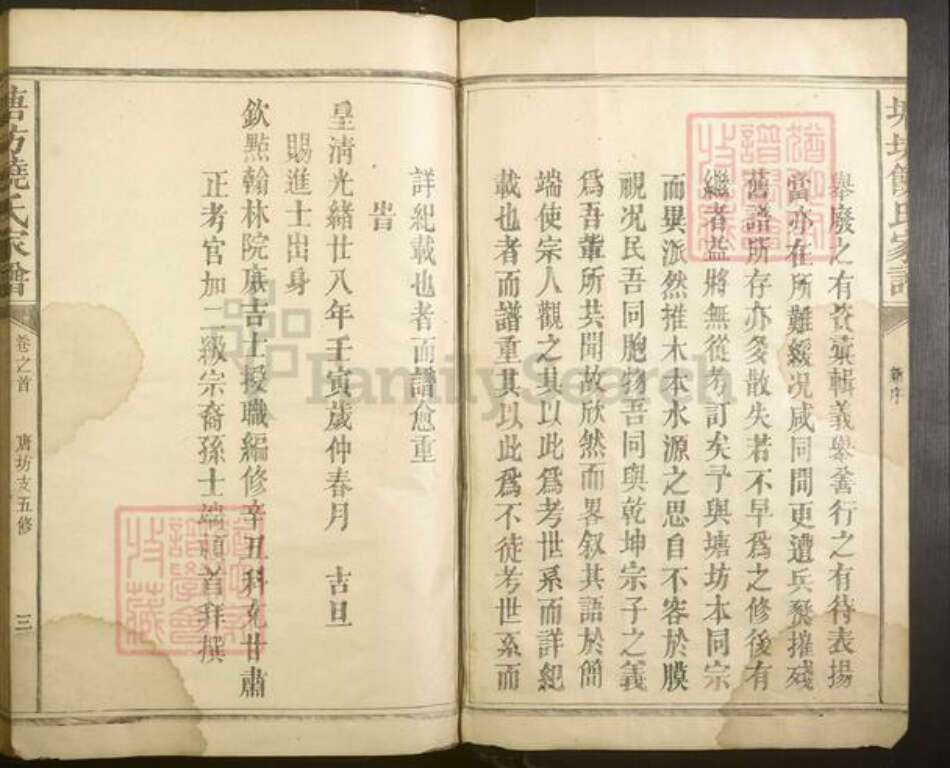 塘坊饒氏家譜
新序
舉廢之有葺彙輯義舉善行之有待表揚
當亦在所難緩况咸同間更遭兵燹摧殘
舊譜所存亦多散失若不早為之修後有
繼者益將無從考訂矣予與塘坊本同宗
而異派然推木本水源之思自不容於膜
視况民吾同胞物吾同與乾坤宗子之義
為吾輩所共聞故欣然而畧叙其語於簡
端使宗人觀之其以此為考世系而詳紀
載也者而譜重其以此為不徒考世系而
詳紀載也者而譜愈重
旹
皇清光緒廿八年壬寅歲仲春月 吉旦
賜進士出身
欽點翰林院庶吉士授職編修辛丑科充甘肅
正考官加二級宗裔孫士端頓首拜撰
塘坊饒氏家譜
卷之首
唐坊支五修
三
FamilySearch